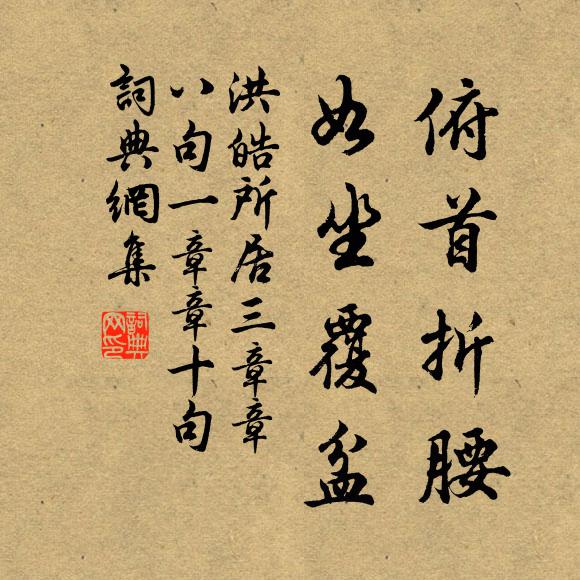 俯首折腰
如坐覆盆
洪皓所居三章章
八句一章章十句
詞典網集
詞典网印